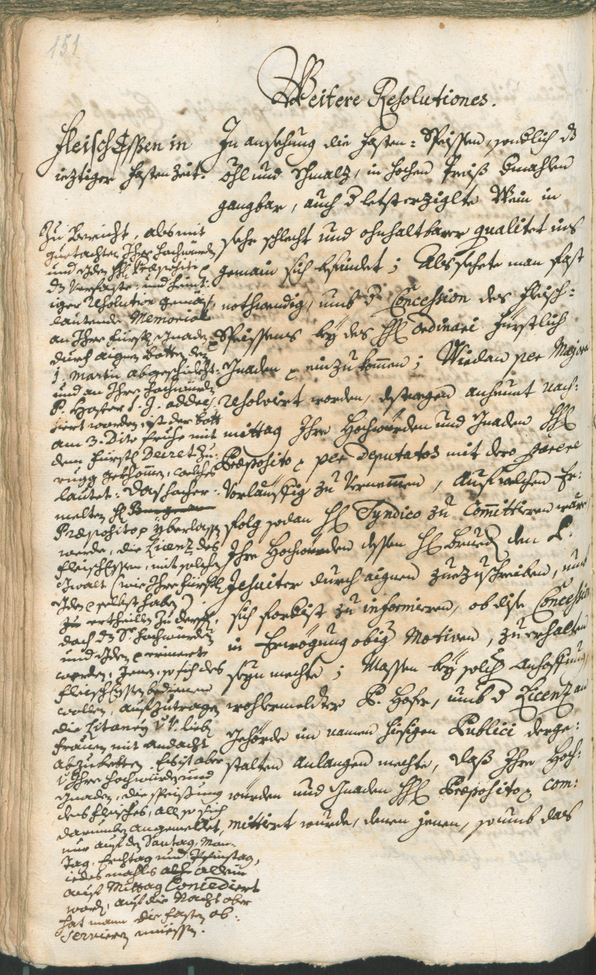 151
Weitere Resolutiones.
Fleisch Essen in
ieziger Fasten Zeit.
In ansehung die Fasten-Speissen, sondlich dz
Öhl und Schmalz, in hochen Preiß dmahlen
gangbar, auch d letst erziglte Wein in
sehr schlecht und ohnhaltbarer qualitet ins
gemain sich befindet; Als sehete man fast
nothwendig, umb d Concession des Fleisch-
Speissens bey des HH Ordinari Fürstlich
Gnaden einzukommen; Wie dan per Majora
resolvirt worden, destwegen anheunt nach-
mittag Ihre Hochwürden und Gnaden HH
Praeposito per Deputatos mit dero
vorläuffig zu vernemmen, auf welchen Er-
folg sodan HH Syndico zu Committieren wäre
Ihre Hochwürden dessen HH Brued den P.
Jesuiter durch aignen zuezuschreiben, und
sich forderist zu informieren, ob dise Concession
in Erwögung obig Motiven, zu erhalten
seyn mechte; Massen bey solch Anhoffung
wohlermelter P. umb d Licenz an
Gehörde im namen hiesigen Publici derge-
stalten anlangen mechte, daß Ihre Hoch-
würden und Gnaden HH Praeposito com-
mittirt wurde, denen jenen, so umb das
Zu Bericht, als mit
guetachten Ihro Hochwürden
und Gden HH Praeposito
dz verfaste, und heut-
iger Resolution gemäß
lautende Memorial
an Ihre Fürstl. Gnaden
durch aignen Botten den
1. Martii abgeschickht
und an Ihro Hochwürden
P. S. J. addres-
siert worden, ist der Bott
am 3. Dito fruhe mit
dem Fürstl. Decret zu-
rugg gekhommen, welches
lautet: Daß hocher-
melten H.
Praeposito yberlassen
werde, die Licenz des
Fleischessen, mit solchem
Gwalt (wie Ihre Fürstl.
Gden selbst haben)
zu ertheilen zu derffen,
doch dz S. Hochwürden
und Gden erinnert
werden, jenen, so sich des
Fleischessens bedienen
wollen, aufzutragen
die Litaney U. lieben
Frauen mit andacht
abzubetten. Es ist aber
v. Ihre Hochwürden und
Gnaden, die Speissung
des Fleisches, alle so sich
darumben angemeltet,
nur auf den Sontag, Mon-
tag, Erchtag und Pfinztag,
iedes mahls allein
auf Mittag Concediert
worden, auf die Nacht aber
hat mann die Fasten ob-
servieren miessen.